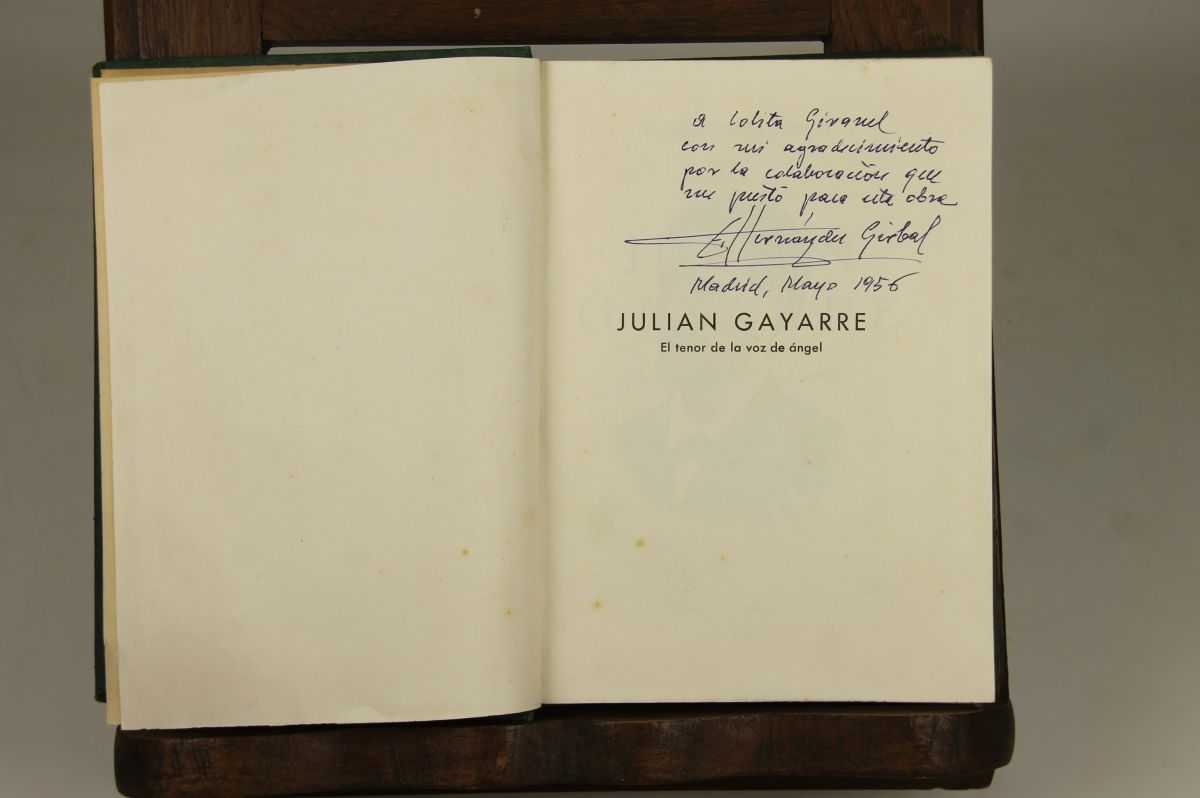 A Lolita Giranel
con mi agradecimiento
por la colaboración que
me prestó para esta obra
F. Hernández Girbal
Madrid, Mayo 1956
JULIAN GAYARRE
El tenor de la voz de ángel